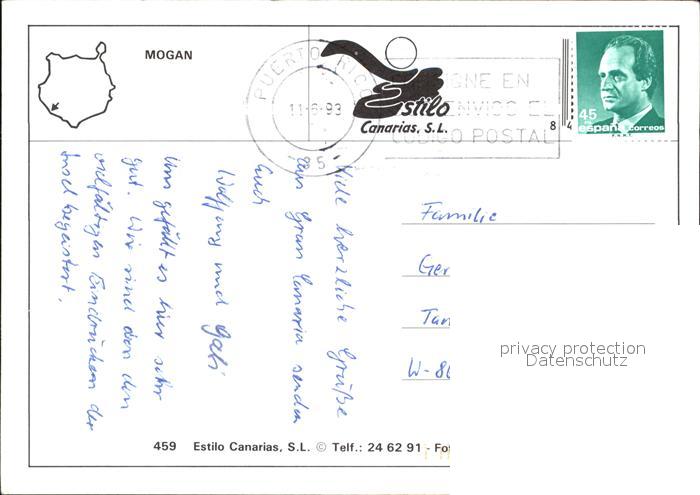 MOGAN
PUERTO RICO
11-6-93
85
Estilo
Canarias, S.L.
CONSIGNE EN
ENVIOS EL
CODIGO POSTAL
8 4
45
españa correos
Viele herzliche Grüße
aus Gran Canaria senden
Euch
Wolfgang und Gabi
Uns gefällt es hier sehr
gut. Wir sind von den
vielfältigen Eindrücken der
Insel begeistert.
Familie
Ger
W-86
privacy protection
Datenschutz
459 Estilo Canarias, S.L. © Telf.: 24 62 91 - Fo